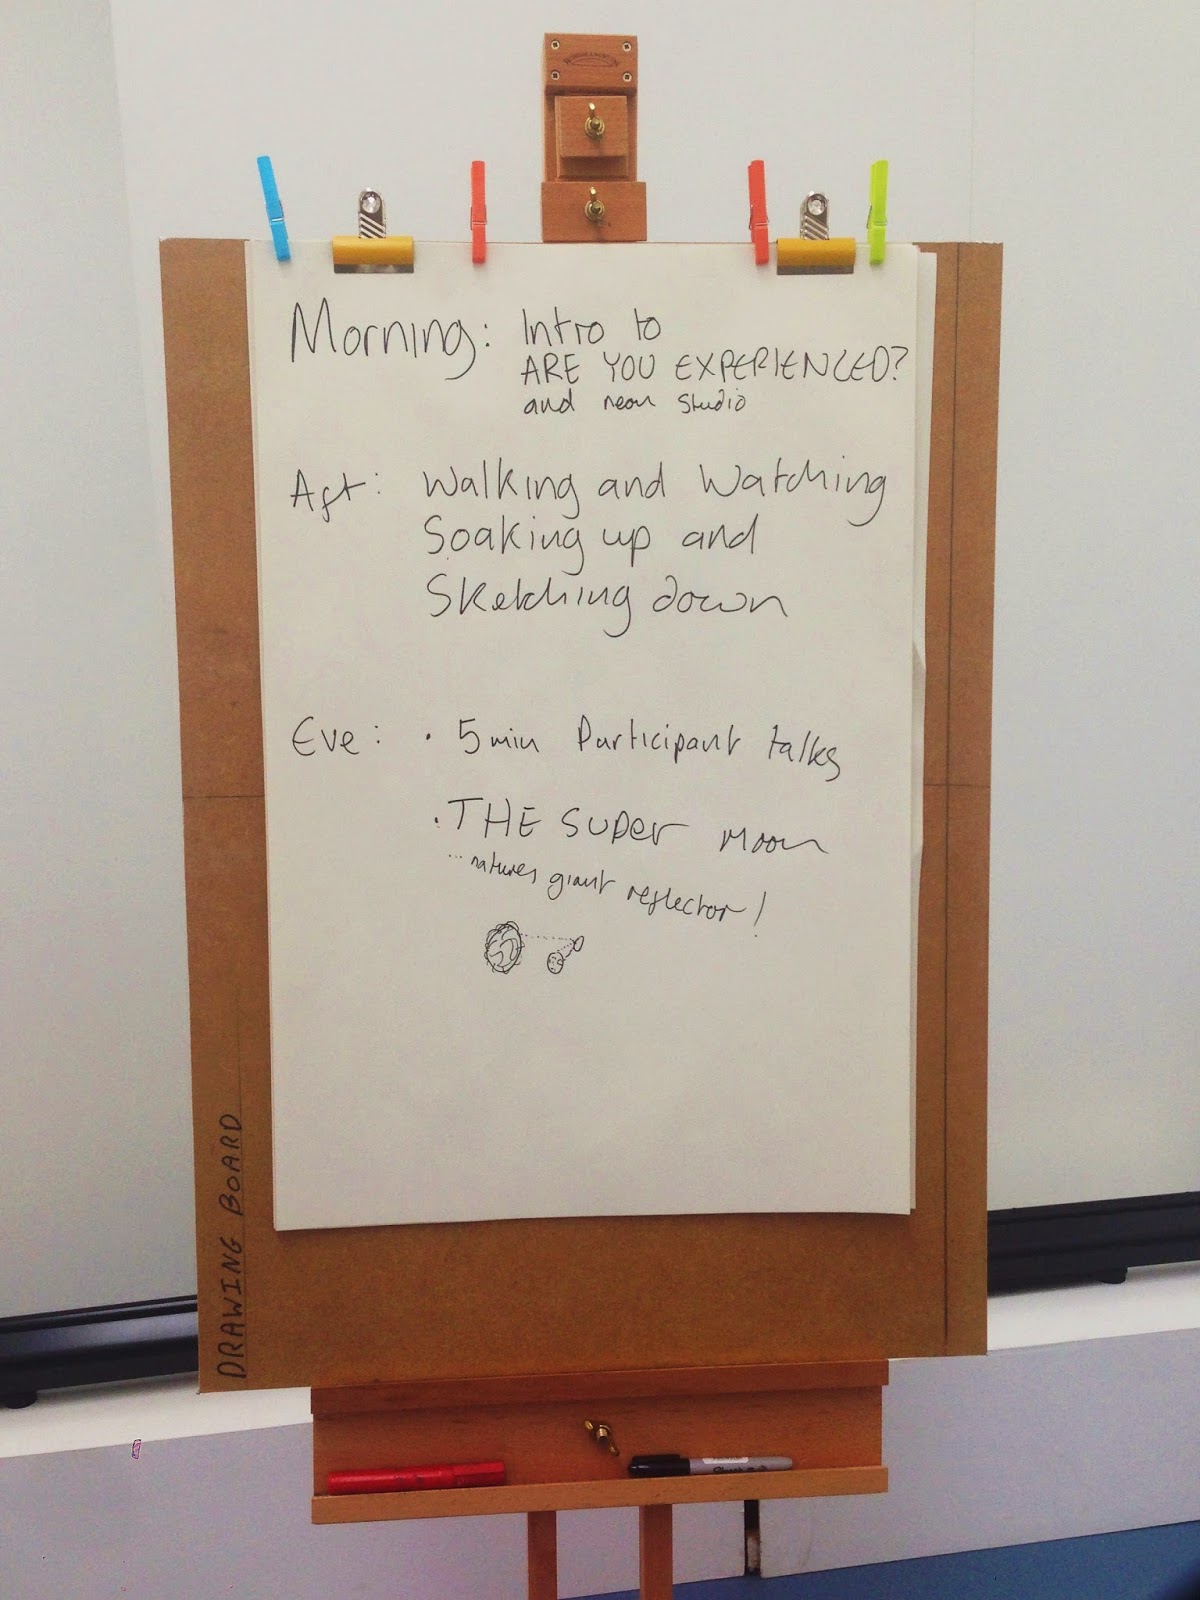 Morning: Intro to
ARE YOU EXPERIENCED?
and neon studio
Aft: Walking and Watching
Soaking up and
Sketching down
Eve: • 5 min Participant talks
• THE SUPER MOON
... natures giant reflector!
DRAWING BOARD